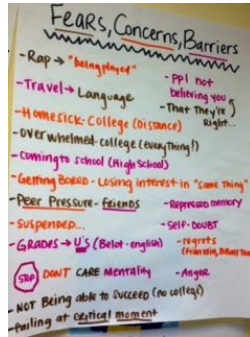 Fears, Concerns, Barriers
- Rap → "being played"
- Travel → Language
- Homesick - College (Distance)
- Overwhelmed - College (everything!)
- Coming to school (High School)
- Getting BORED - Losing interest in "same thing"
- Peer Pressure - friends
- Suspended...
- GRADES → U's (Belot - english)
DONT CARE Mentality
- NOT Being able to Succeed (no college)
- Failing at critical moment
- PPl not believing you
- That They're Right...
- Repression memory
- Self-DOUBT
- regrets
- Anger